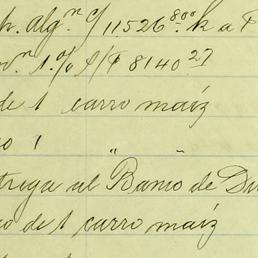 h. Alg.ⁿ c/ 11.526.⁸⁰⁰ k a F
n 1.% s/₣ 8140.27
de 1 carro maíz
o 1 " "
trega al Banco de Du
o de 1 carro maíz